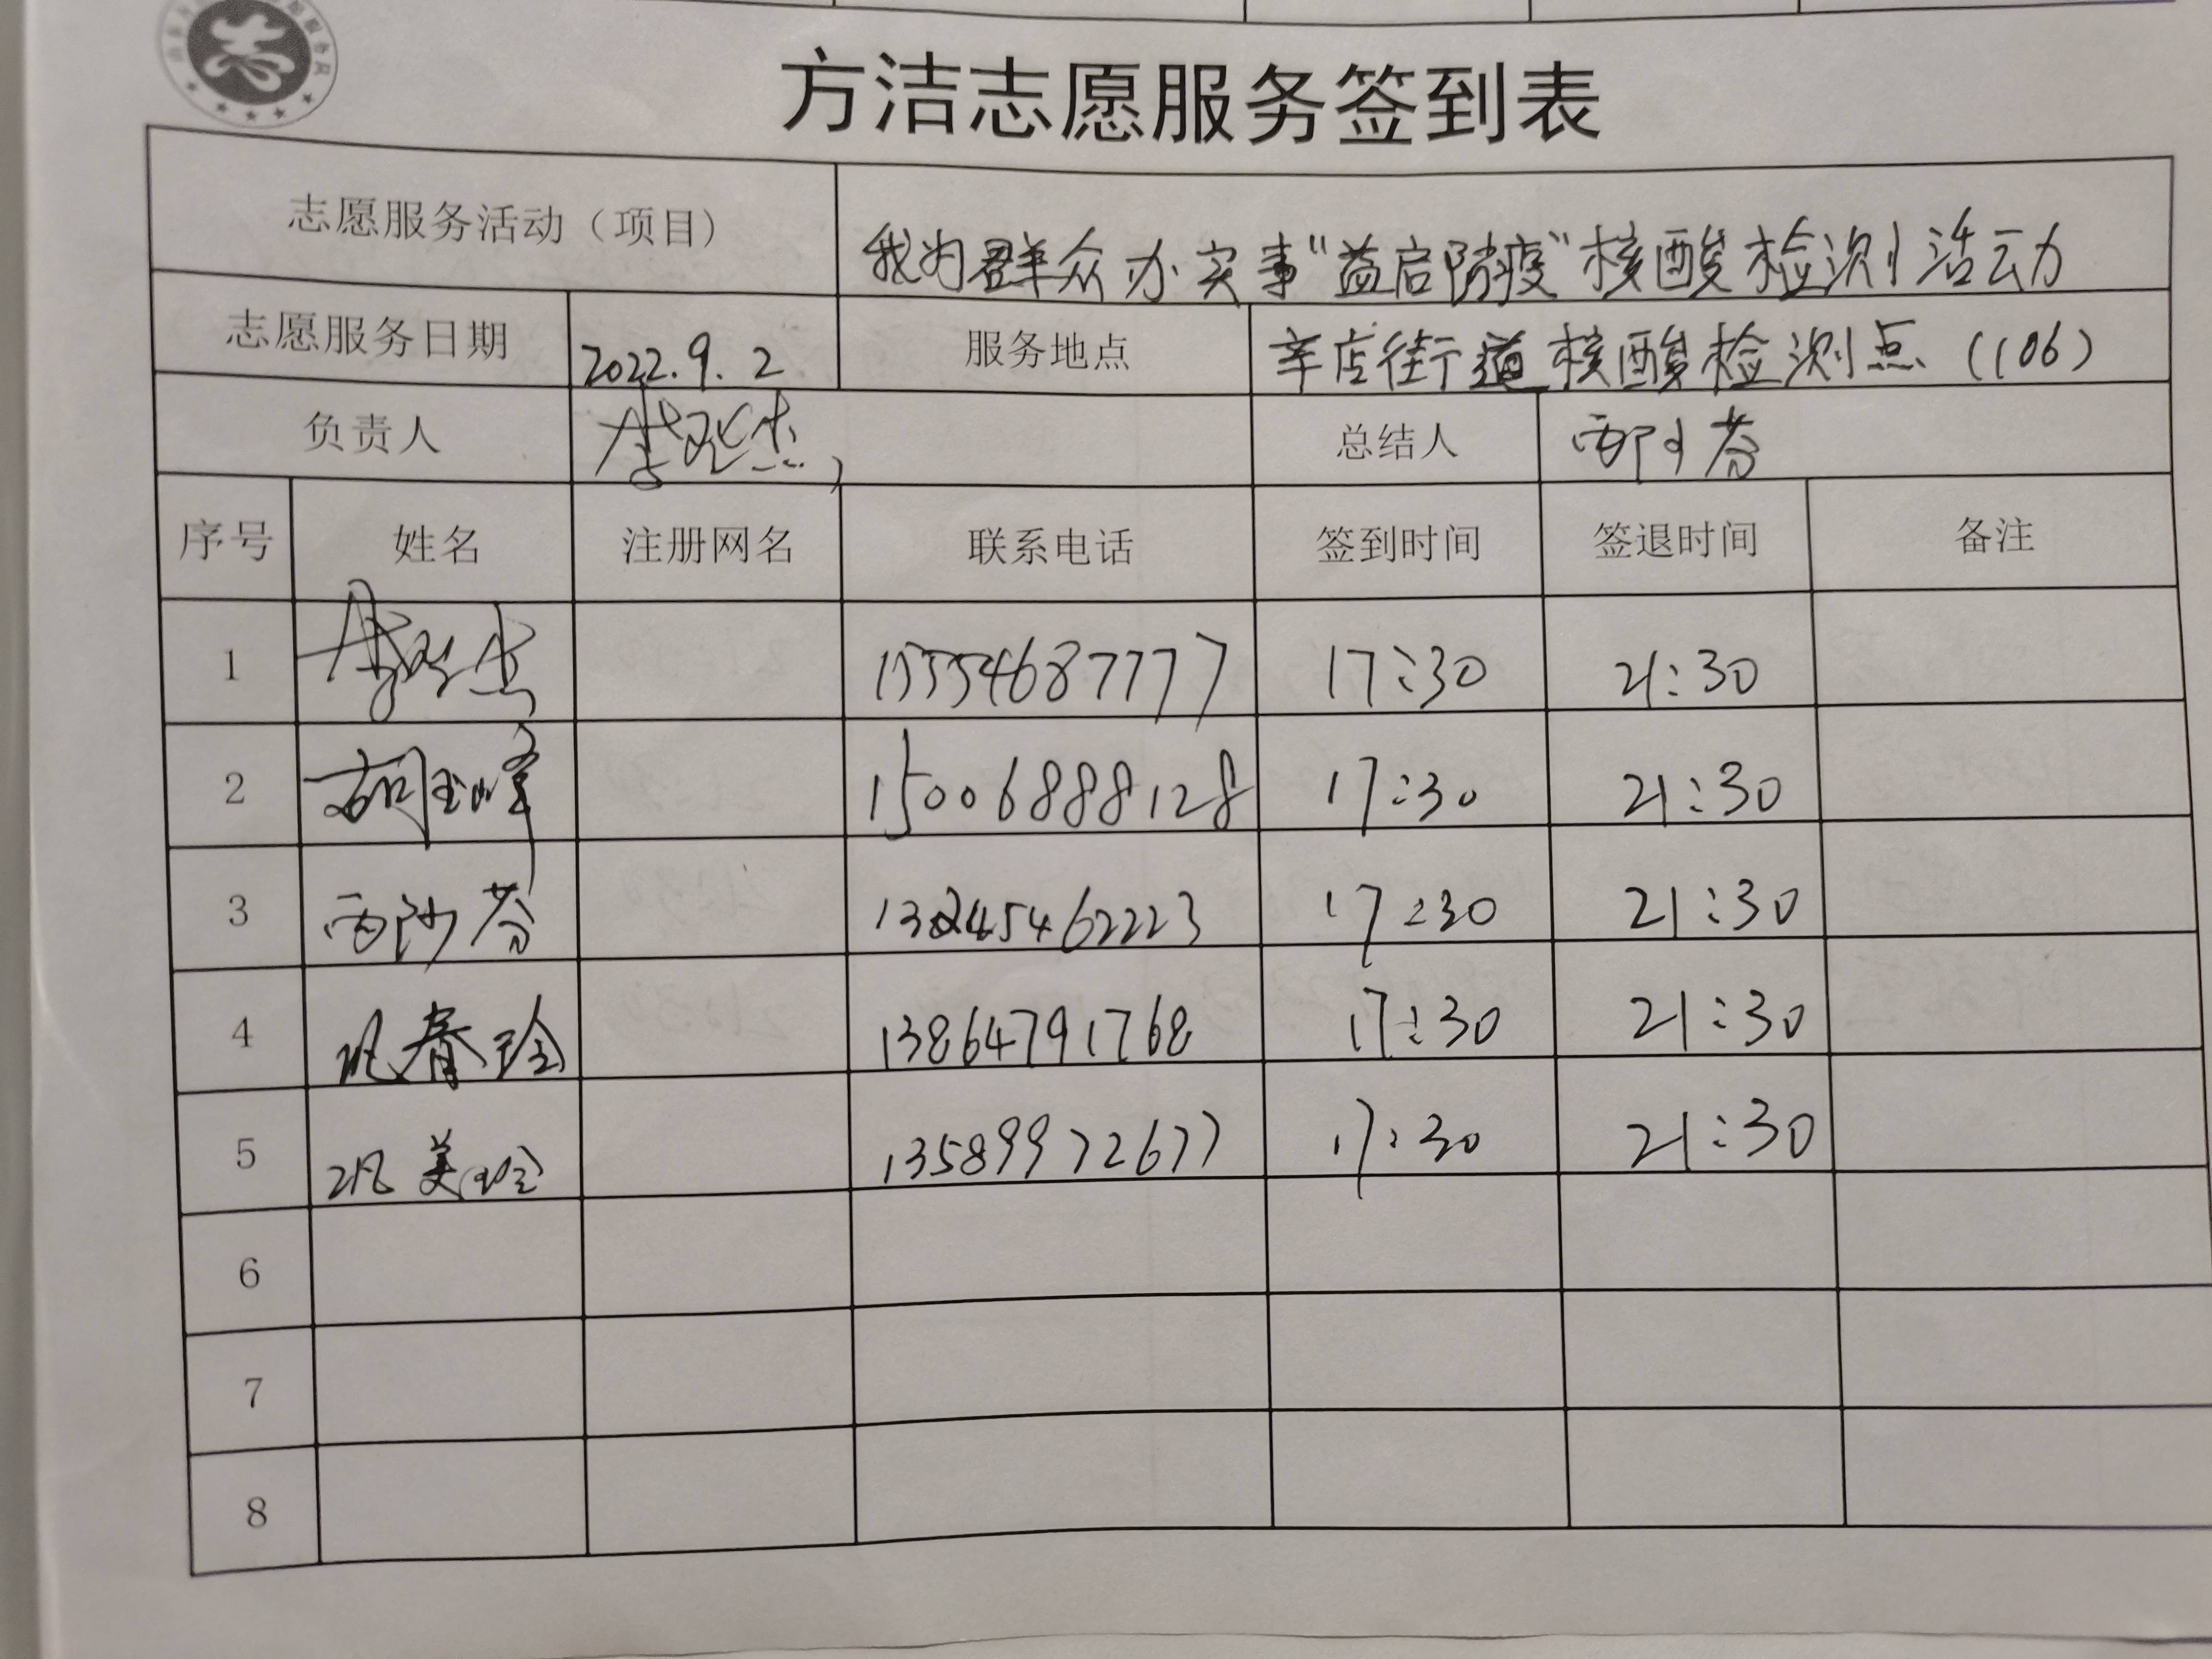 方洁志愿服务签到表
志愿服务活动（项目） 我为群众办实事“益启防疫”核酸检测活动
志愿服务日期 2022.9.2 服务地点 辛店街道核酸检测点（106）
负责人 总结人
序号 姓名 注册网名 联系电话 签到时间 签退时间 备注
1 15554687777 17:30 21:30
2 胡玉峰 15006888128 17:30 21:30
3 17:30 21:30
4 巩春玲 13864791768 17:30 21:30
5 巩美玲 13589972677 17:30 21:30
6
7
8